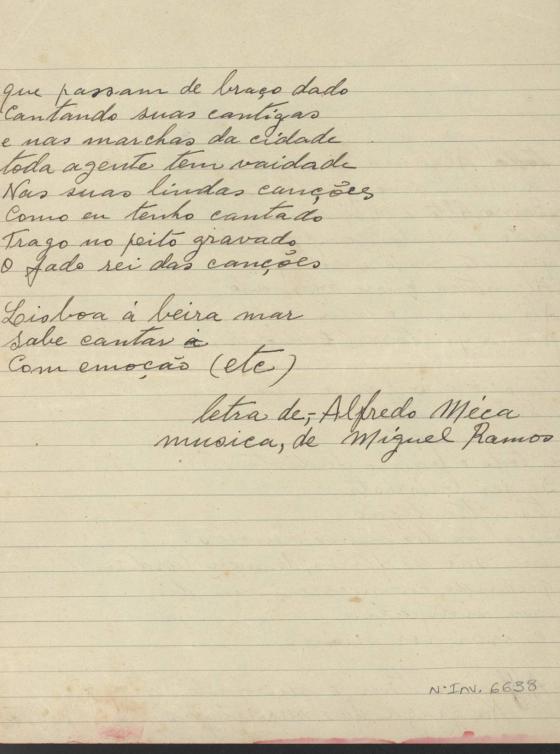 que passam de braço dado
Cantando suas cantigas
e nas marchas da cidade
toda agente tem vaidade
Nas suas lindas canções
Como eu tenho cantado
Trago no peito gravado
O fado rei das canções
Lisboa á beira mar
Sabe cantar a
Com emoção (etc)
letra de,- Alfredo Méca
musica, de Miguel Ramos
Nº INV. 6638